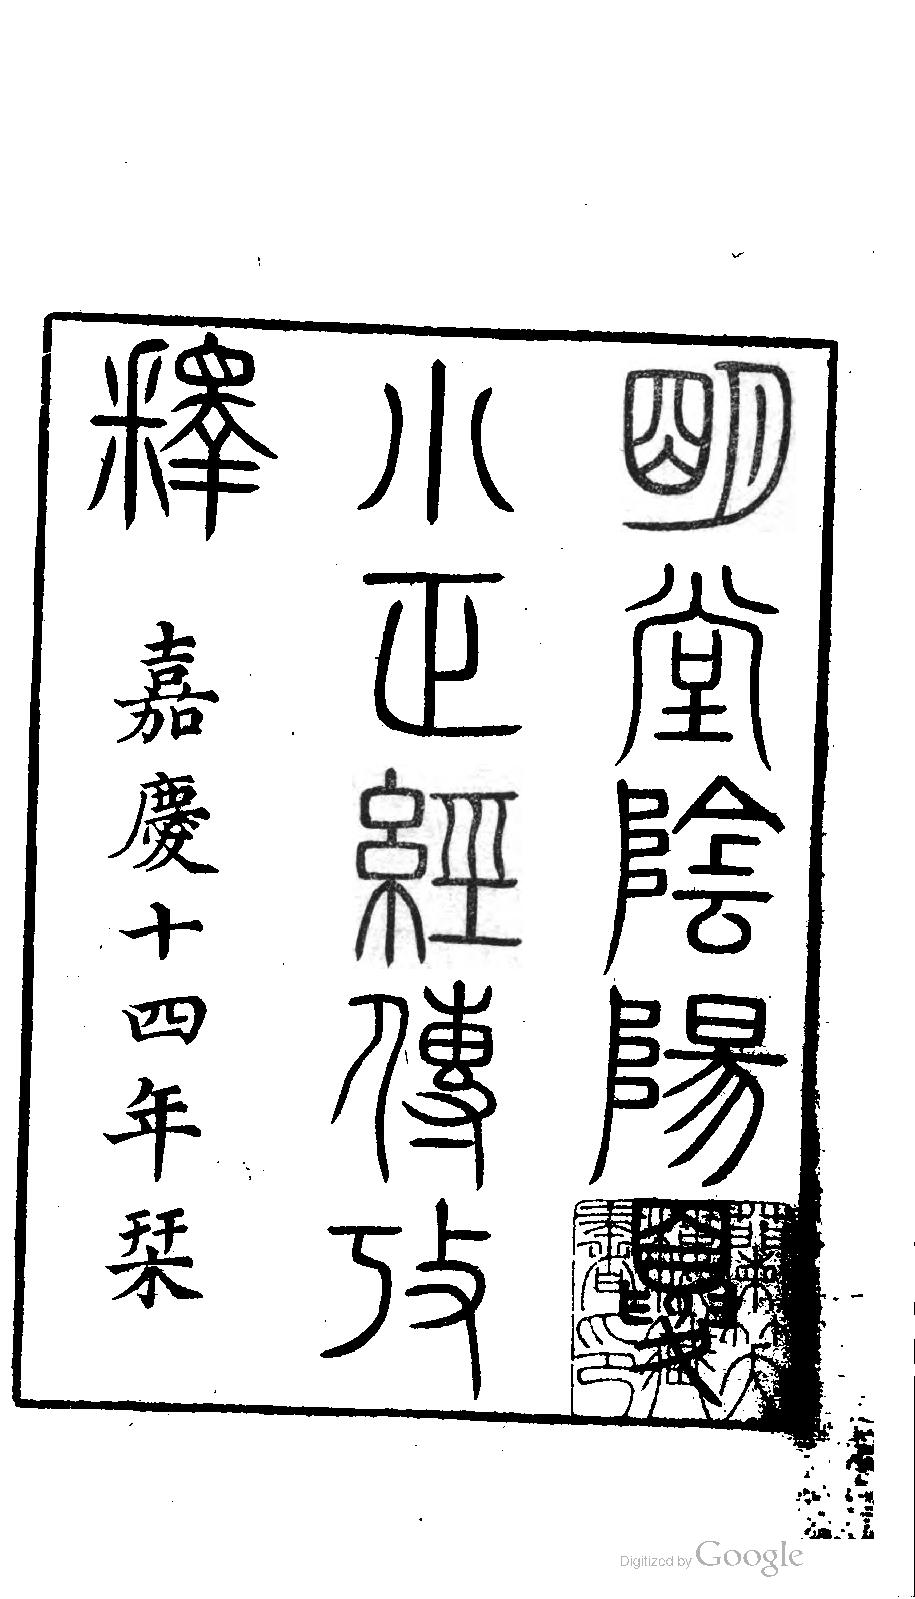 明堂陰陽夏
小正經傳攷
釋
嘉慶十四年栞
Digitized by Google